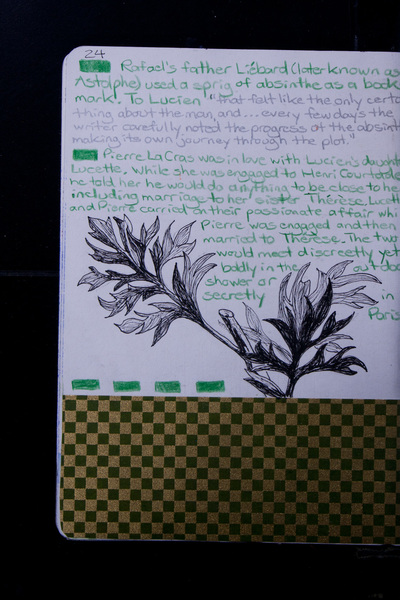 24
Rafael's father Liébard (later known as
Astolphe) used a sprig of absinthe as a book
mark. To Lucien "that felt like the only certa
thing about the man, and... every few days the
writer carefully noted the progress of the absint
making its own journey through the plot."
Pierre LaCras was in love with Lucien's daught
Lucette. While she was engaged to Henri Courtade
he told her he would do anything to be close to he
including marriage to her sister Thérèse. Lucett
and Pierre carried on their passionate affair whi
Pierre was engaged and then
married to Thérèse. The two
would meet discreetly yet
boldly in the outdoo
shower or
secretly in
Paris